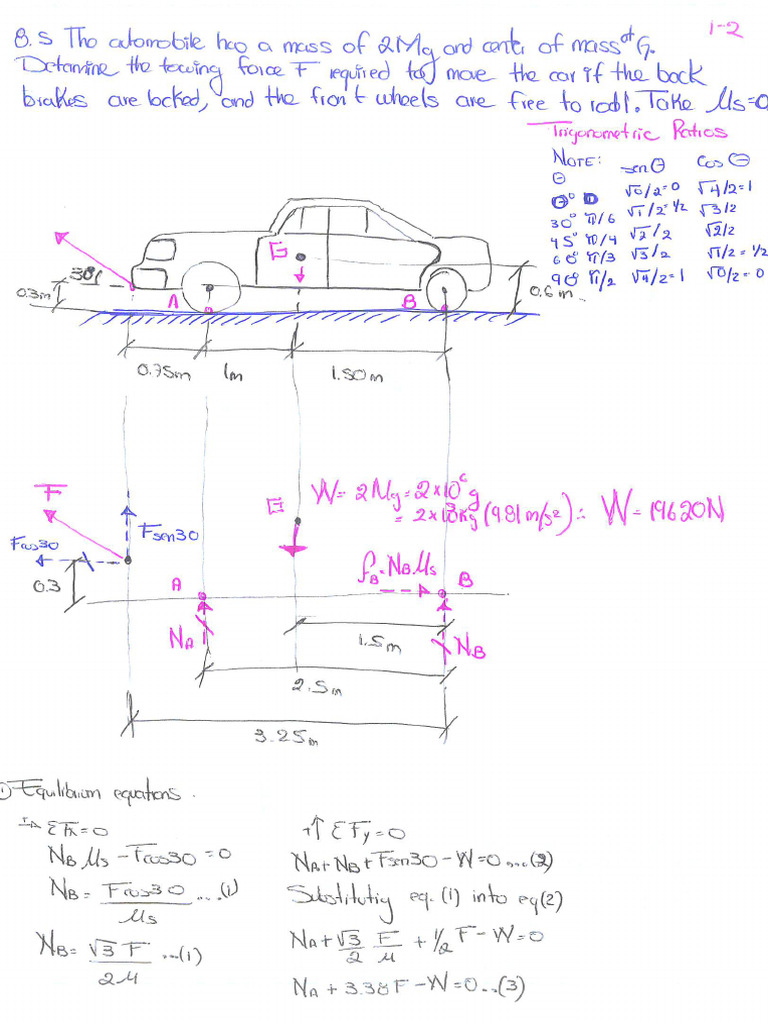 1-2
8.5 The automobile has a mass of 2Mg and center of mass at G.
Determine the towing force F required to move the car if the back
brakes are locked, and the front wheels are free to roll. Take μs=0
Trigonometric Ratios
NOTE:
θ senθ cosθ
0° 0 √0/2=0 √4/2=1
30° π/6 √1/2=1/2 √3/2
45° π/4 √2/2 √2/2
60° π/3 √3/2 √1/2=1/2
90° π/2 √4/2=1 √0/2=0
G
30°
0.3m
A
B
0.6m
0.75m 1m 1.50m
F
G
W=2Mg=2x10⁶g
=2x10³Kg(9.81m/s²)∴ W=19620N
Fsen30
Fcos30
0.3
A
fB=NBμs
B
NA
NB
1.5m
2.5m
3.25m
① Equilibrium equations.
ΣFx=0
NBμs-Fcos30=0
NB=Fcos30/μs ....(1)
NB=√3F/2μ ...(1)
+↑ΣFy=0
NA+NB+Fsen30-W=0....(2)
Substitutig eq.(1) into eq(2)
NA+√3/2 F/μ+1/2F-W=0
NA+3.38F-W=0...(3)